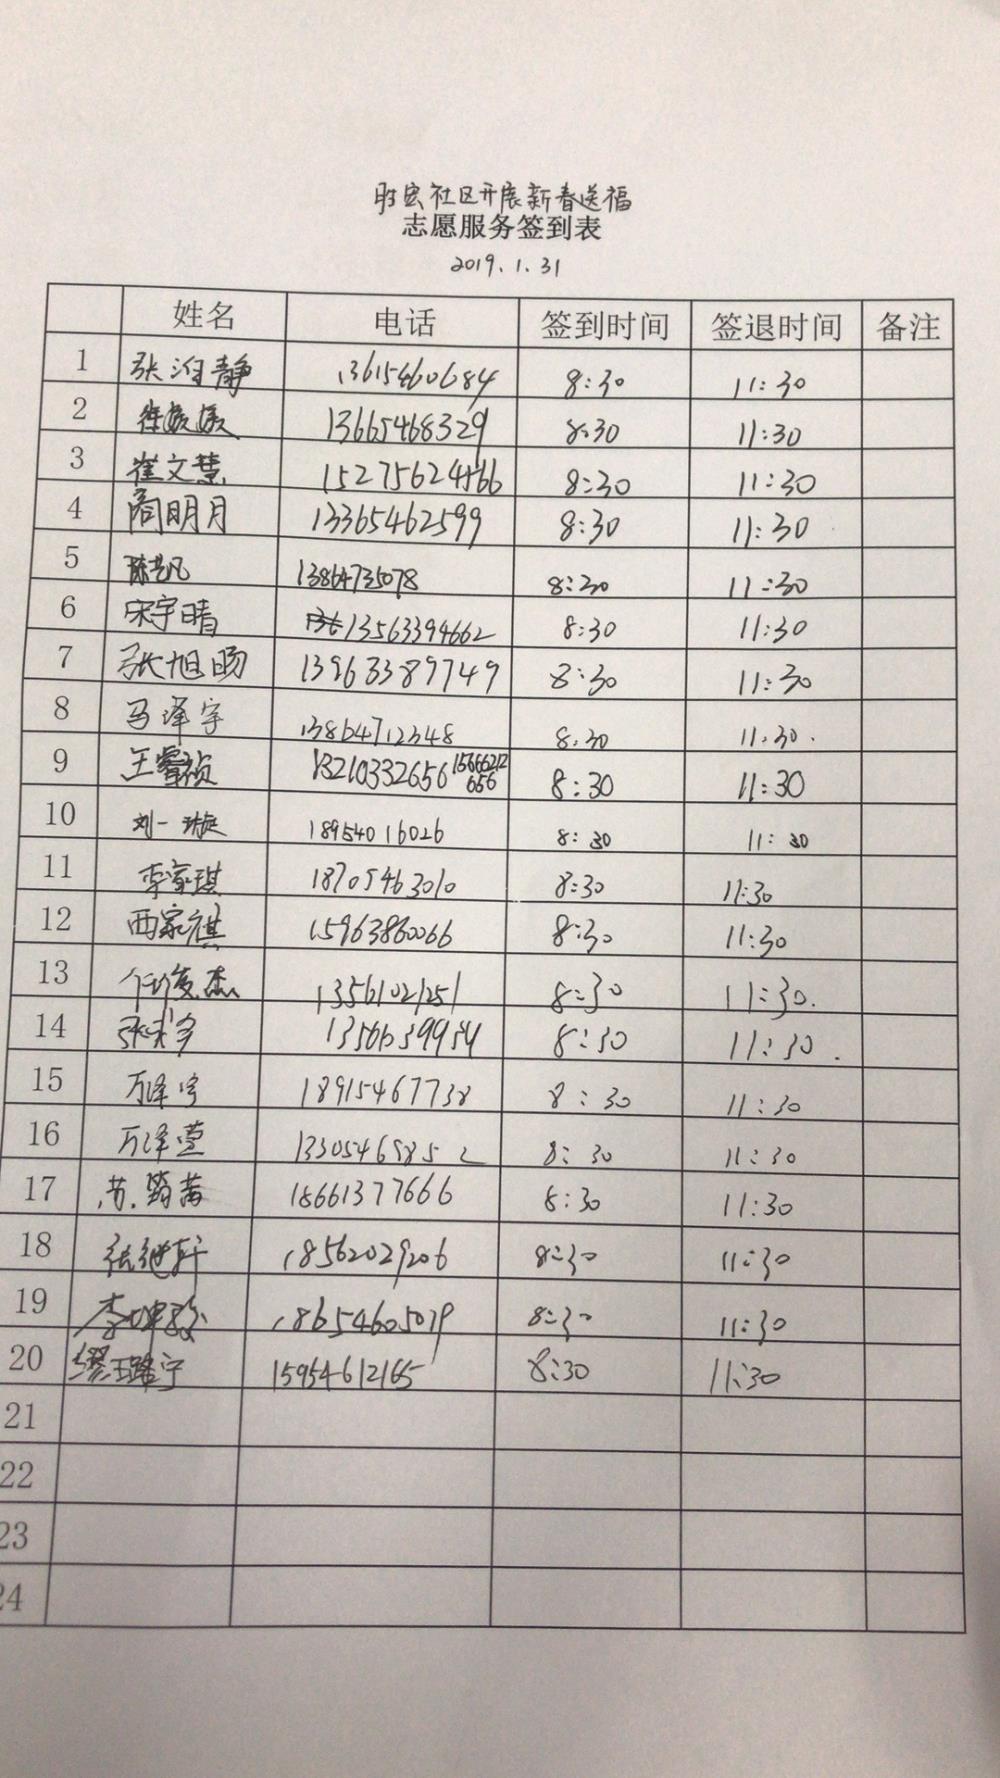 胜宏社区开展新春送福
志愿服务签到表
2019.1.31
姓名 电话 签到时间 签退时间 备注
1 张洎静 13615460684 8:30 11:30
2 徐媛媛 13665468329 8:30 11:30
3 崔文慧 15275624466 8:30 11:30
4 商明月 13365462599 8:30 11:30
5 陈艺凡 13864735078 8:30 11:30
6 宋宇晴 13563394662 8:30 11:30
7 张旭旸 13963389749 8:30 11:30
8 马泽宇 13864712348 8:30 11:30.
9 王睿祯 13210332656 15666212656 8:30 11:30
10 刘一璇 18954016026 8:30 11:30
11 李家琪 18705463010 8:30 11:30
12 西家祺 15963860066 8:30 11:30
13 杰 13561021251 8:30 11:30.
14 张 8:30 11:30.
15 万泽宇 18915467738 8:30 11:30
16 万泽萱 13305469852 8:30 11:30
17 苏 18661377666 8:30 11:30
18 张继轩 18562029206 8:30 11:30
19 李坤 18654605079 8:30 11:30
20 缪璐宁 15954612165 8:30 11:30
21
22
23
24